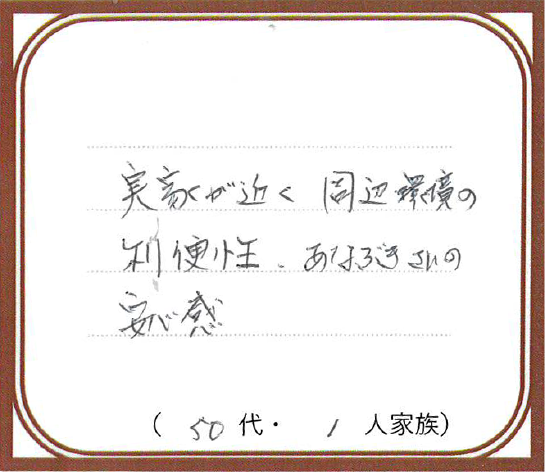 実家が近く 周辺環境の
利便性、あなぶきさんの
安心感
( 50 代・ 1 人家族)